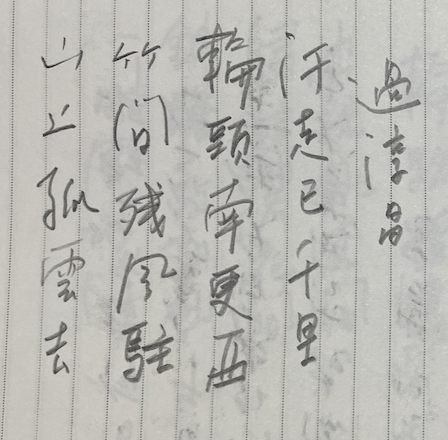 過淳昌
汗走已千里
輪頭南更西
竹間残風駐
山上孤雲去